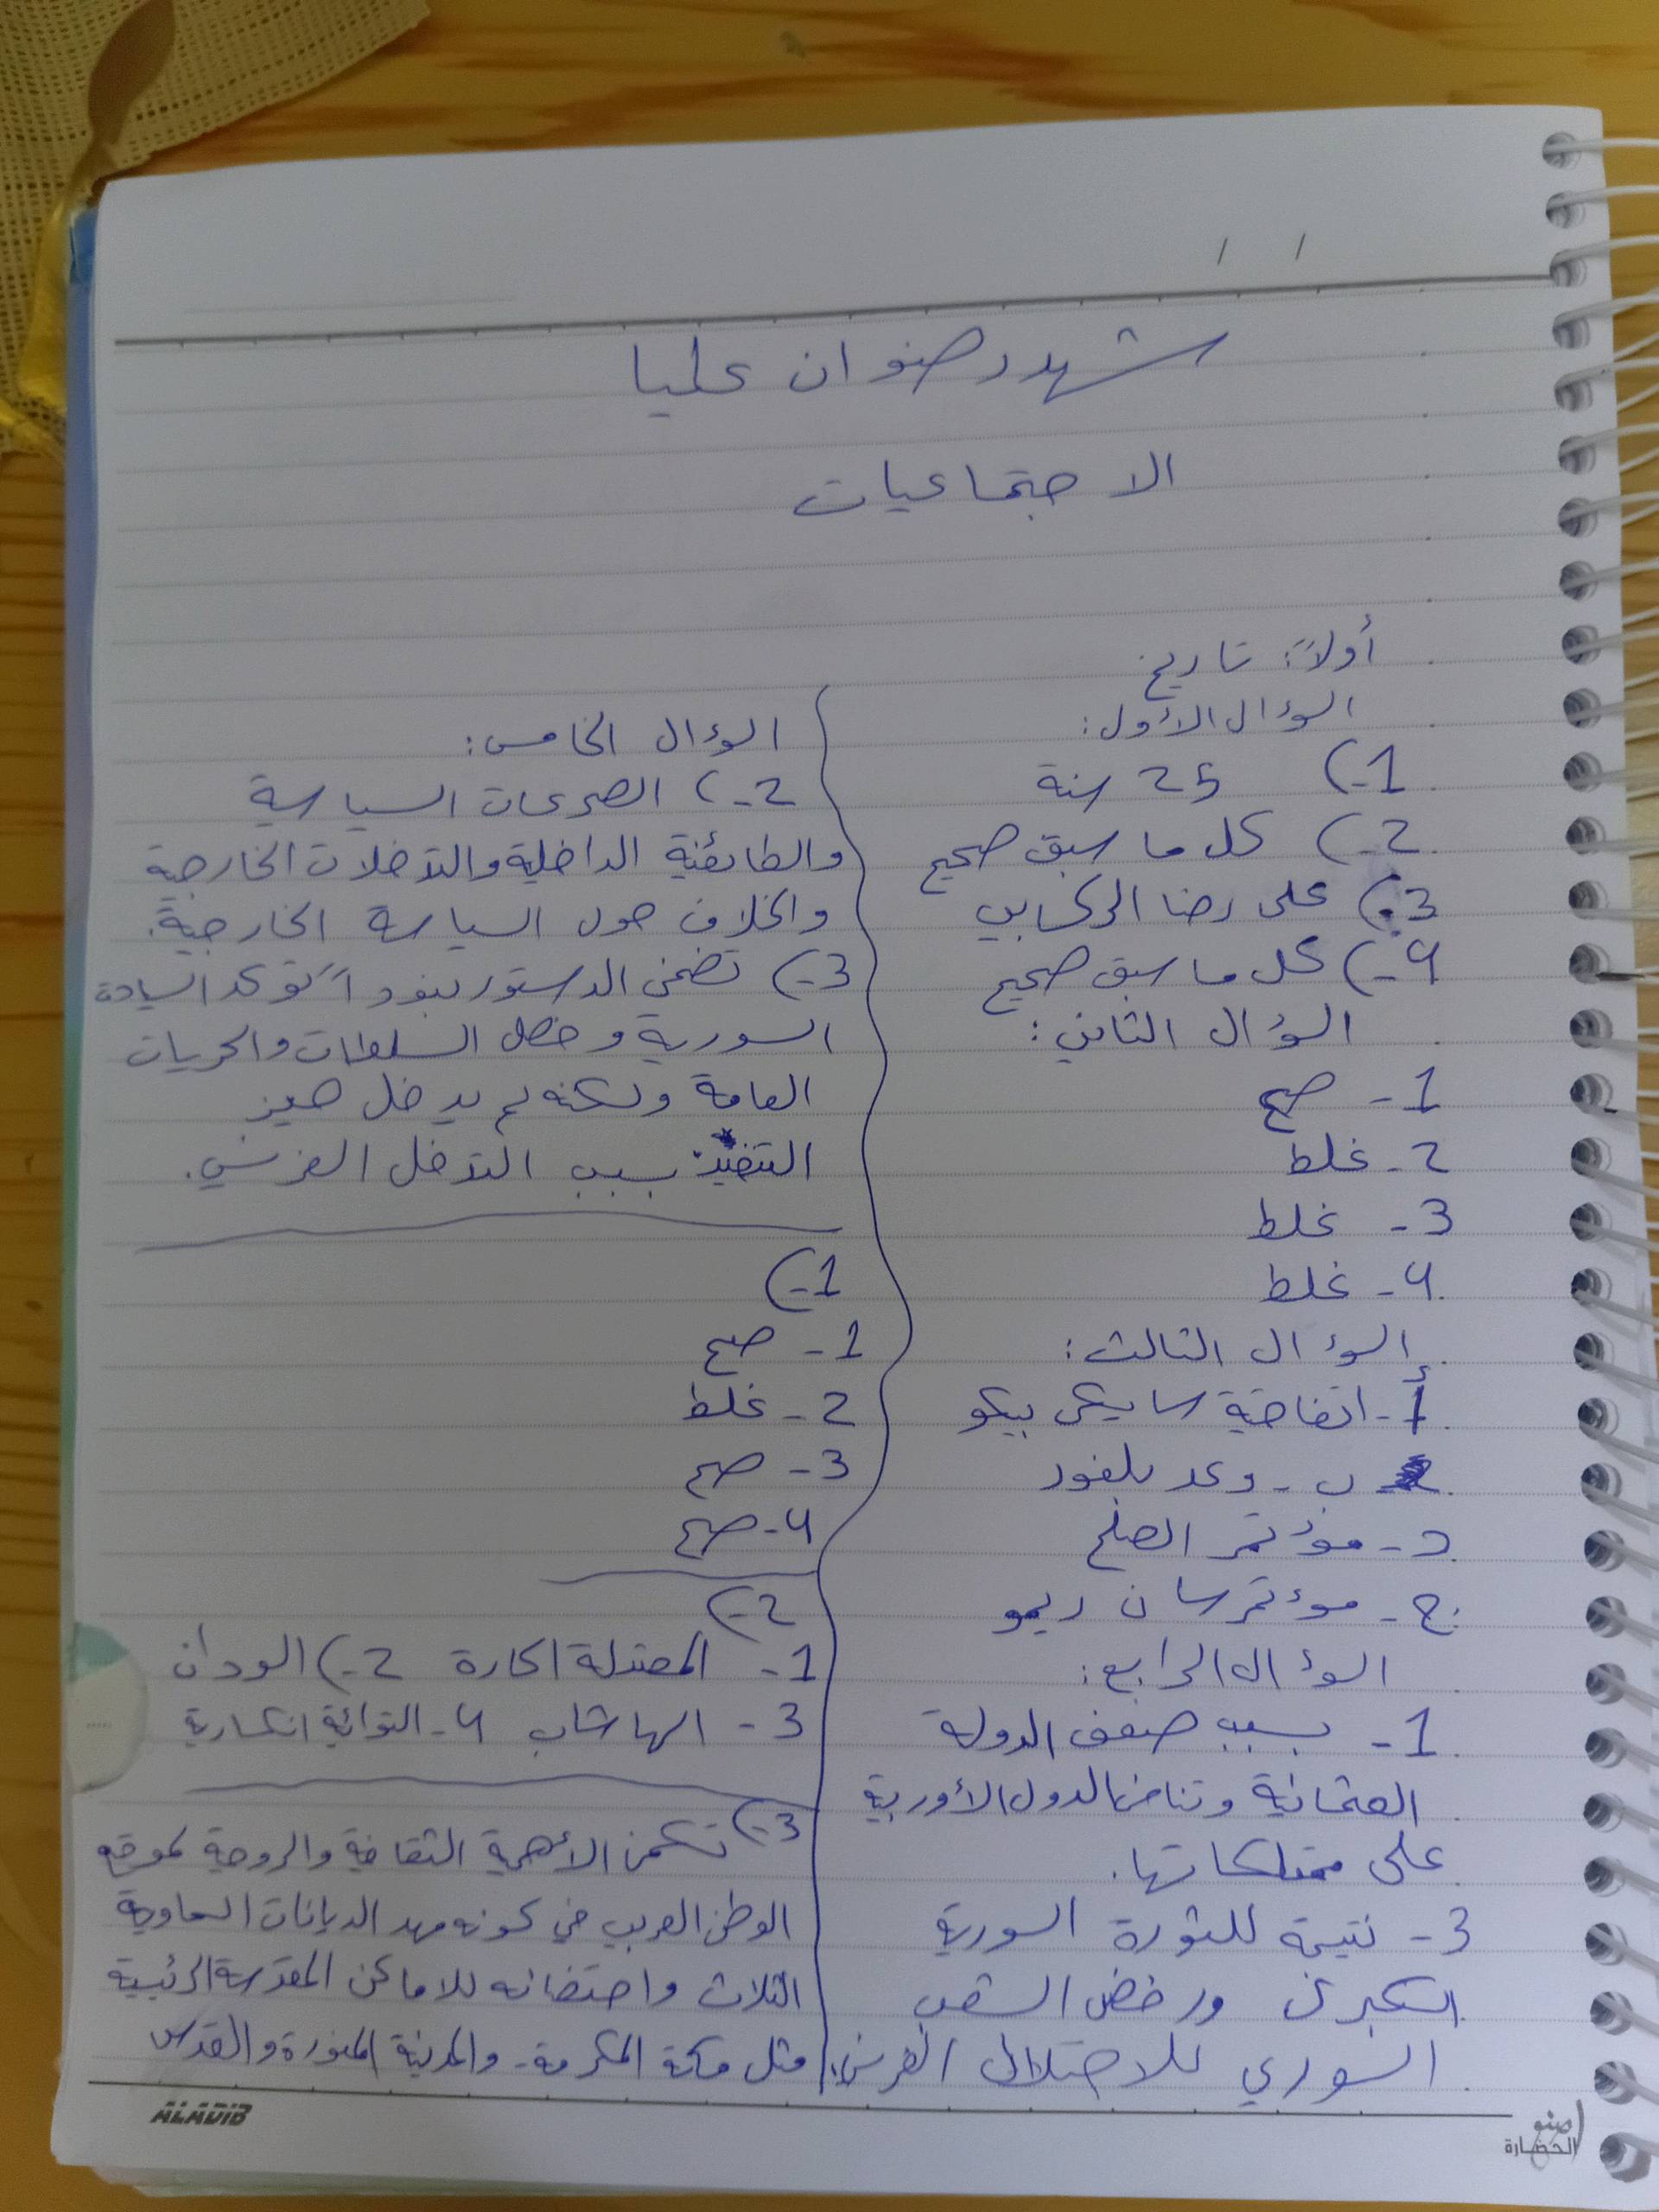 شهد رضوان عليا
الاجتماعيات
أولاً: تاريخ
السؤال الأول:
1-) 25 سنة
2-) كل ما سبق صحيح
3-) علي رضا الركابي
4-) كل ما سبق صحيح
السؤال الثاني:
1- صح
2- غلط
3- غلط
4- غلط
السؤال الثالث:
أ- اتفاقية سايكس بيكو
ب- وعد بلفور
د- مؤتمر الصلح
ج- مؤتمر سان ريمو
السؤال الرابع:
1- بسبب ضعف الدولة
العثمانية وتنافس الدول الأوربية
على ممتلكاتها.
3- نتيجة للثورة السورية
الكبرى ورفض الشعب
السوري للاحتلال الفرنسي.
السؤال الخامس:
2-) الصرعات السياسية
والطائفية الداخلية والتدخلات الخارجية
والخلاف حول السياسة الخارجية.
3-) تضمن الدستور بنوداً تؤكد السيادة
السورية وفصل السلطات والحريات
العامة ولكنه لم يدخل حيز
التنفيذ بسبب التدخل الفرنسي.
1-)
1- صح
2- غلط
3- صح
4- صح
2-)
1- المعتدلة الحارة 2-) الودان
3- الهاشاب 4- التوائية انكسارية
3-) تكمن الأهمية الثقافية والروحية لموقع
الوطن العربي في كونه مهد الديانات السماوية
الثلاث واحتضانه للاماكن المقدسة الرئيسية
مثل مكة المكرمة- والمدينة المنورة والقدس
ALADIB
اصنع
الحضارة